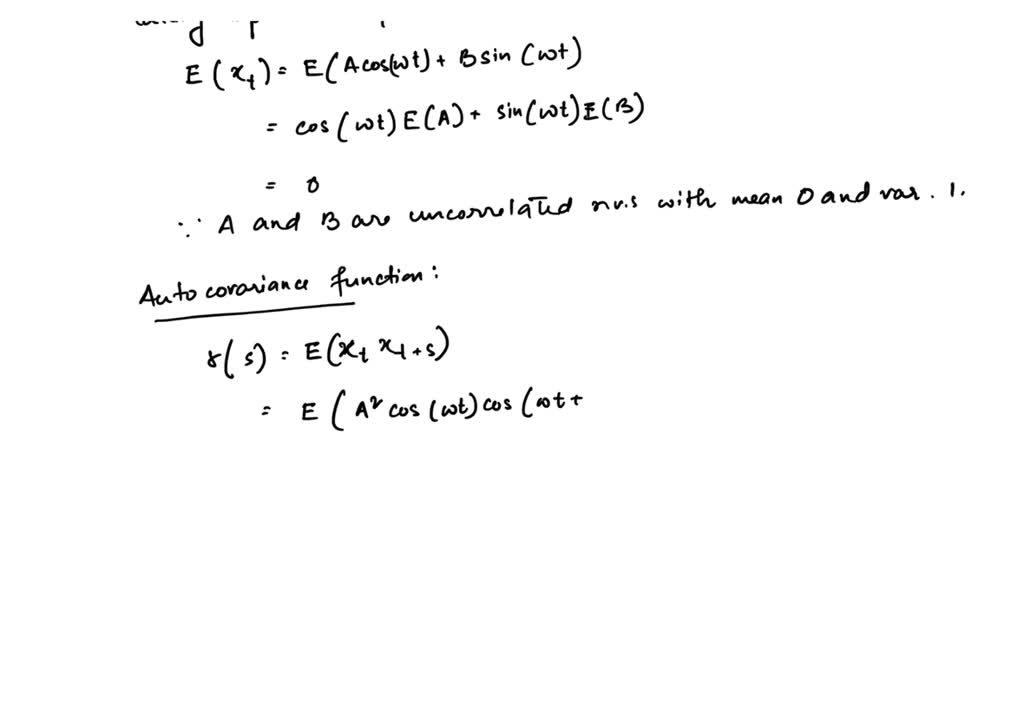 E(x_t) = E(A cos(ωt) + B sin (ωt)
= cos (ωt) E(A) + sin(ωt) E(B)
= 0
∵ A and B are uncorrelated r.v.s with mean 0 and var. 1.
Autocovariance function:
γ(s) = E(x_t x_t+s)
= E (A² cos (ωt) cos (ωt +